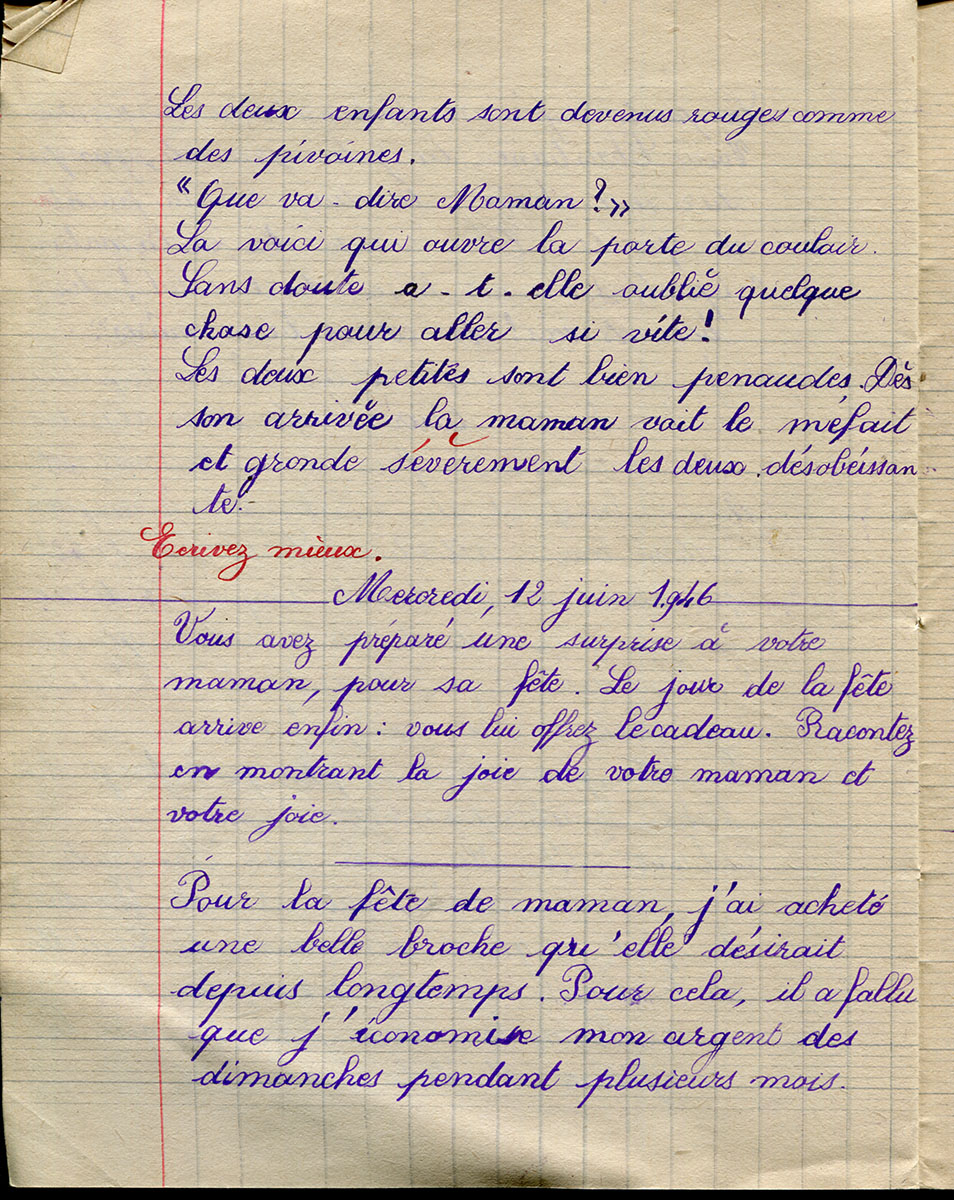 Les deux enfants sont devenus rouges comme
des pivoines.
"Que va-dire Maman ?»
La voici qui ouvre la porte du couloir.
Sans doute a-t-elle oublié quelque
chose pour aller si vite !
Les deux petites sont bien penaudes. Dès
son arrivée la maman voit le méfait
et gronde sévèrement les deux désobéissan-
te.-
Ecrivez mieux.
Mercredi, 12 juin 1946
Vous avez préparé une surprise à votre
maman, pour sa fête. Le jour de la fête
arrive enfin : vous lui offrez le cadeau. Racontez
en montrant la joie de votre maman et
votre joie.
Pour la fête de maman, j'ai acheté
une belle broche qu'elle désirait
depuis longtemps. Pour cela, il a fallu
que j'économise mon argent des
dimanches pendant plusieurs mois.